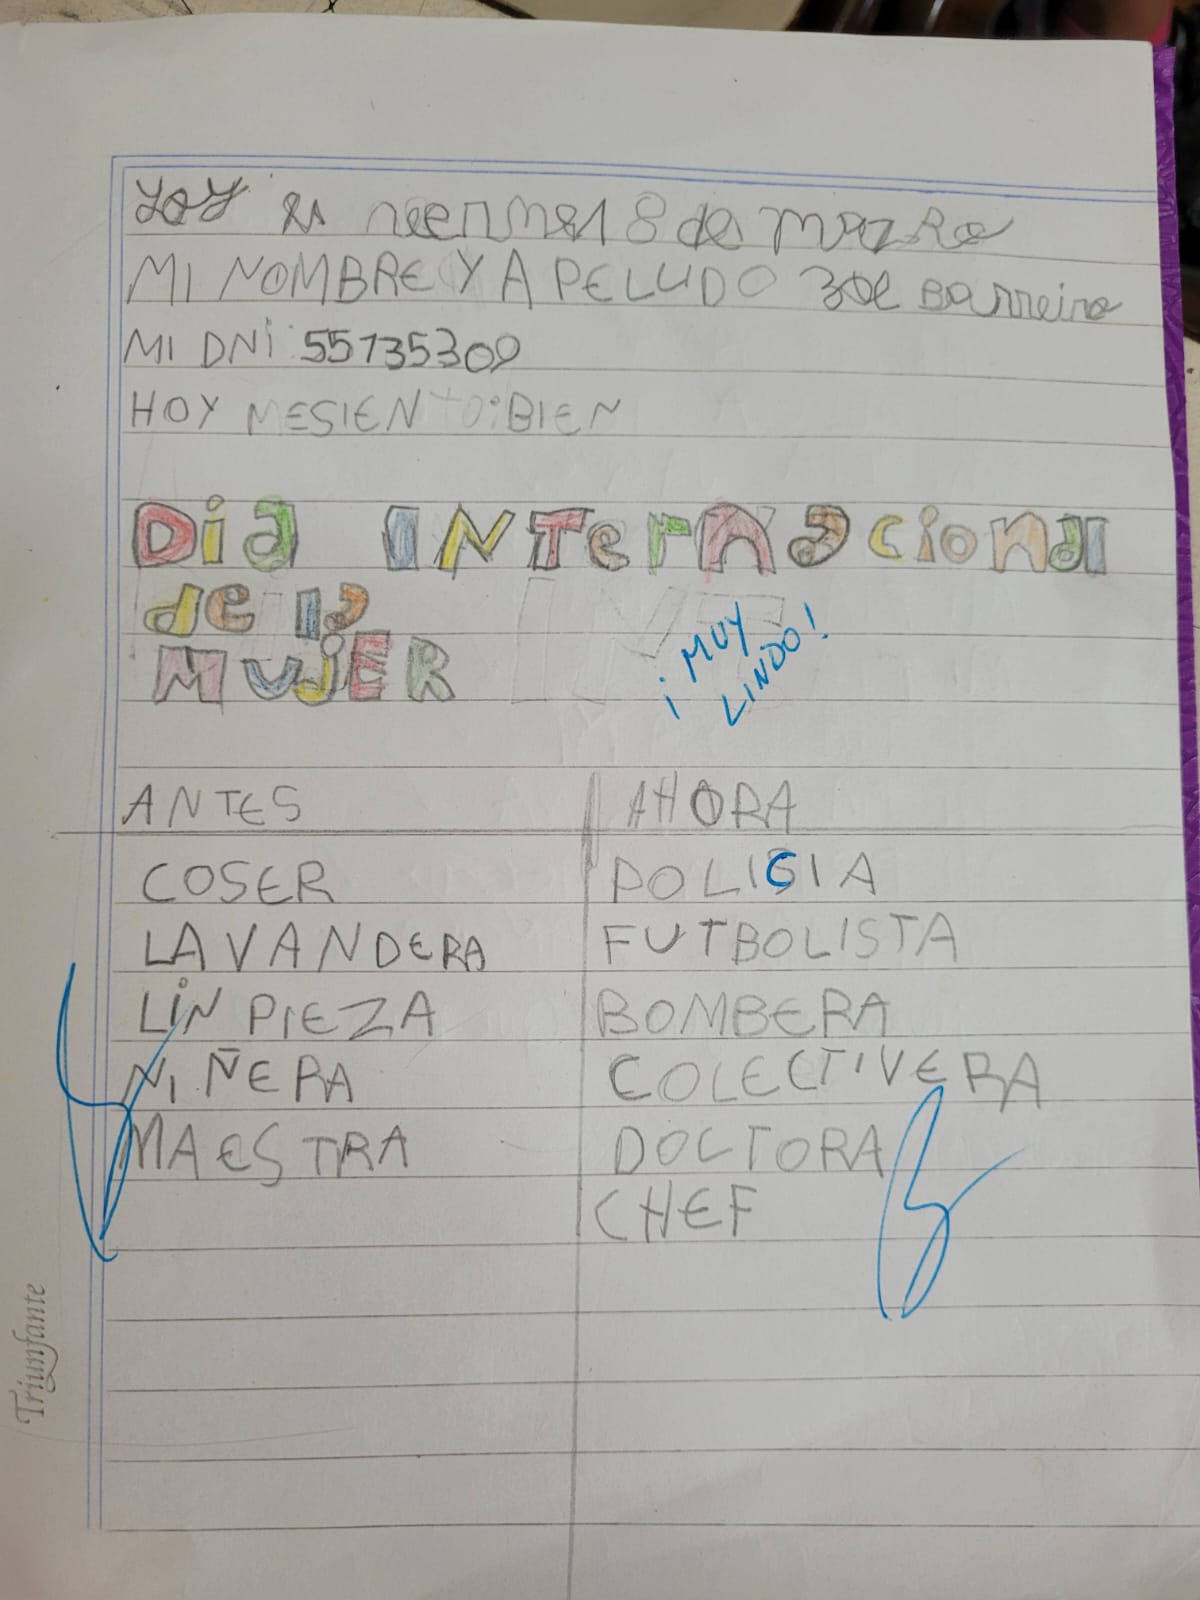 HOY es viernes 8 de marzo
MI NOMBRE Y APELUDO zoe Barreiro
MI DNI: 55135309
HOY MESIENTO: BIEN
Dia INTernacional
de la
MUjER
¡MUY
LINDO!
ANTES AHORA
COSER POLICIA
LAVANDERA FUTBOLISTA
LINPIEZA BOMBERA
NIÑERA COLECTIVERA
MAESTRA DOCTORA
CHEF
Triunfante